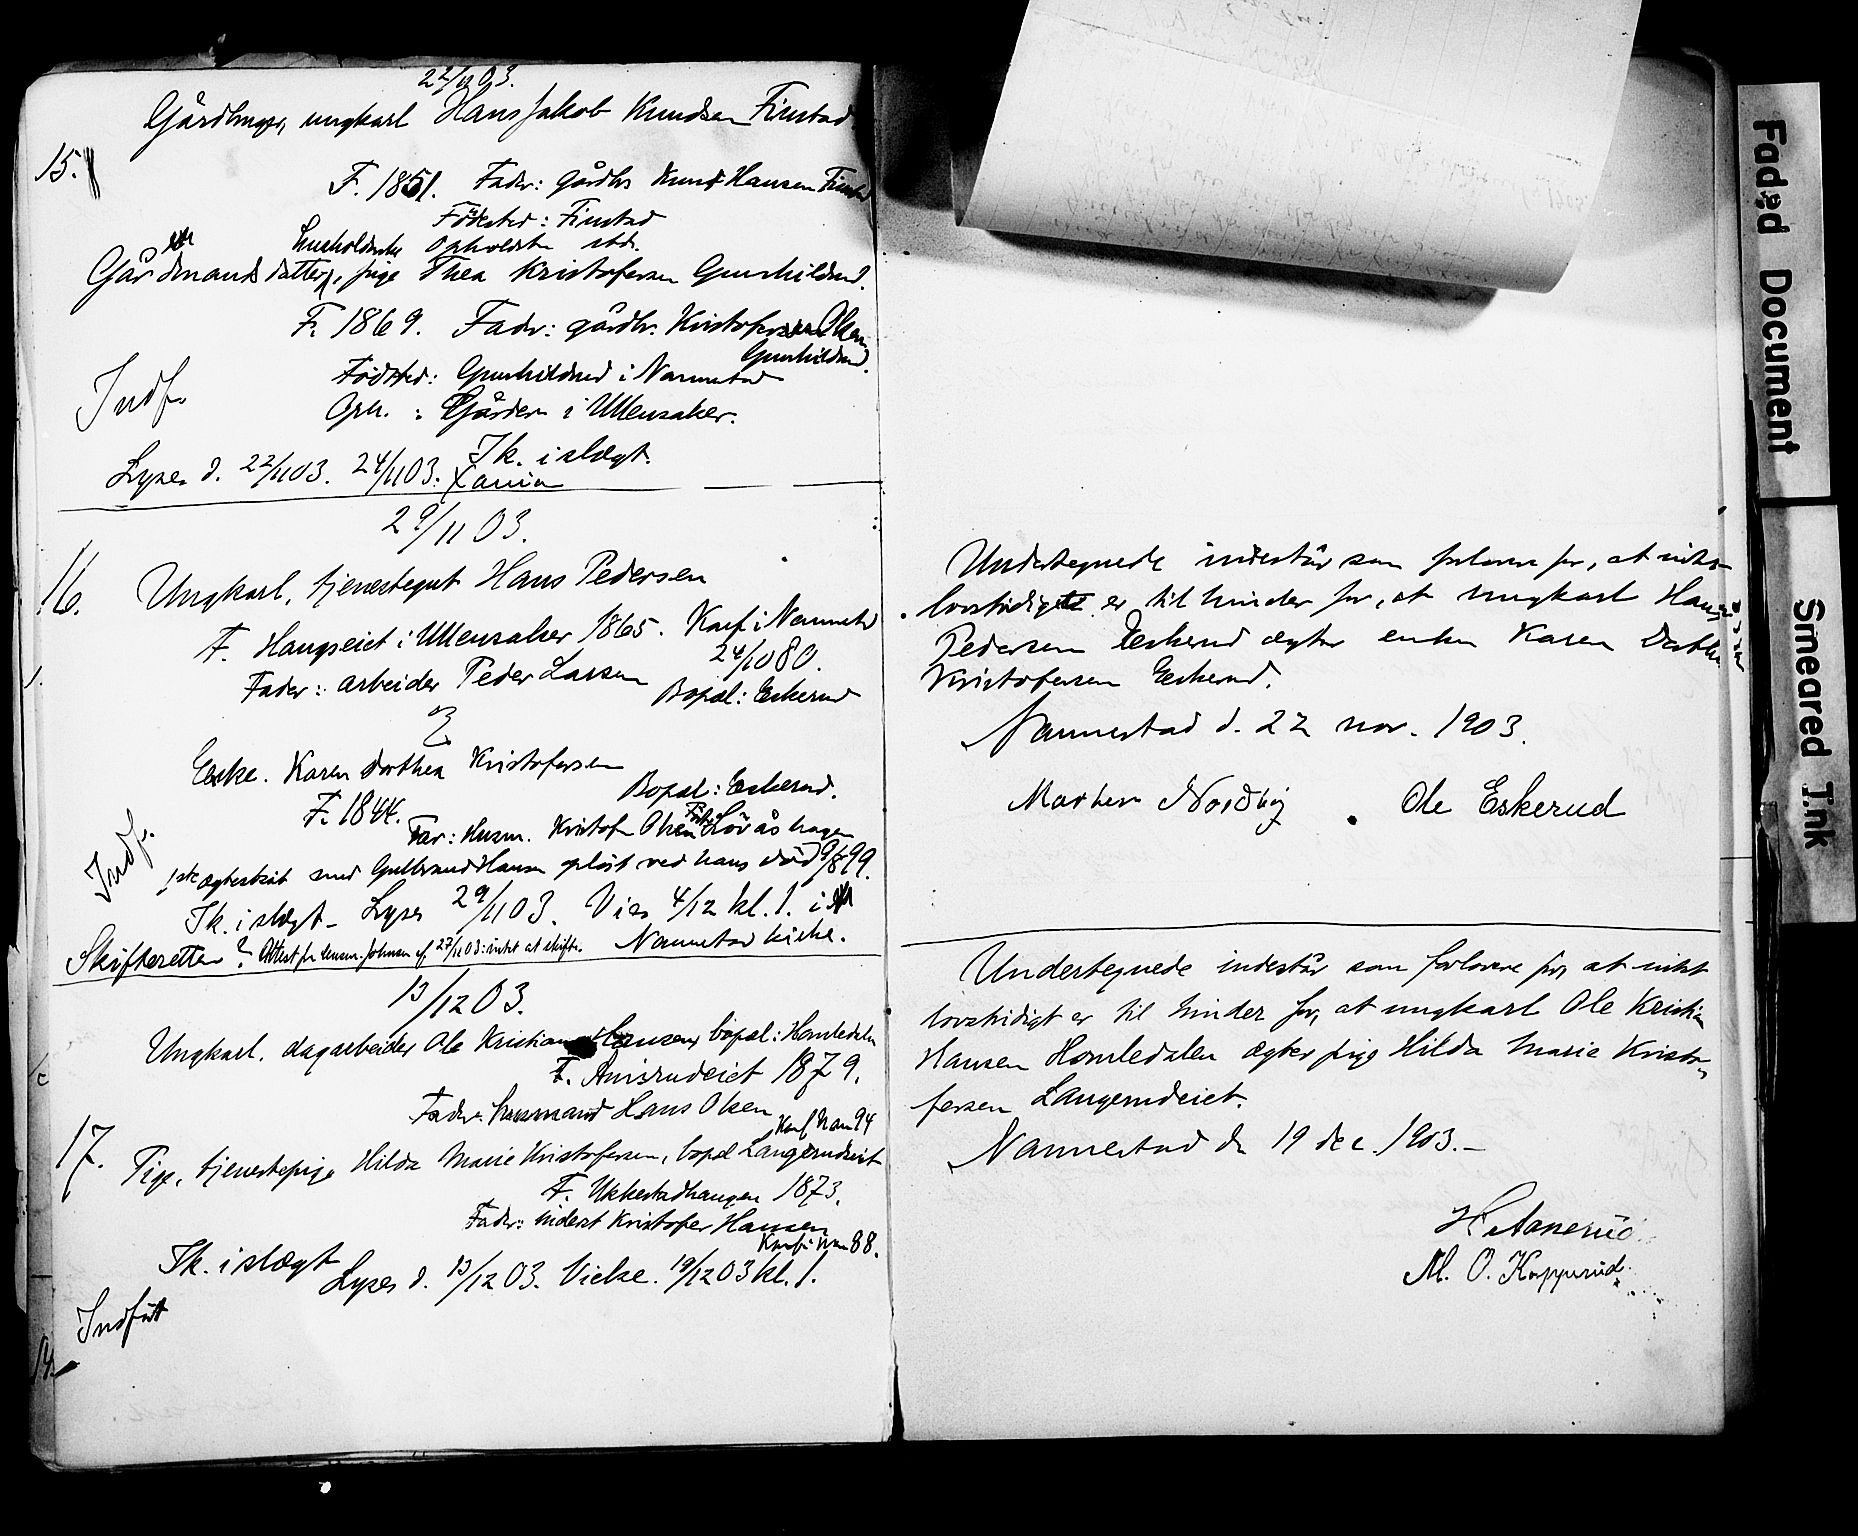 22/11 03.
Gårdbruger, ungkarl Hans Jakob Knudsen Finstad
15.
F. 1851. Fader: gårdbr Knut Hansen Finstad
Födested: Finstad
Opholdst std.
Gårdmandsdatter, pige Thea Kristofersen Gunhildrud.
F. 1869. Fader: gårdbr. Kristofer Olsen
Gunhildrud.
Födsted: Gunhildrud i Nannestad
Oph. : Gården i Ullensaker.
Indf.
Ik. i slægt.
Lyses d. 22/11 03. 24/11 03.
29/11 03.
16. Ungkarl, tjenestegut Hans Pedersen
F. Haugseiet i Ullensaker 1865. Konf i Nannestad
24/10 80.
Fader: arbeider Peder Larsen Bopæl: Eskerud
Enke. Karen Dorthea Kristofersen
Bopæl: Eskerud.
F. 1844.
Far: Husm. Kristofer Olsen Löråshagen
Indf.
1ste ægteskab med Gulbrand Hansen oplöst ved hans död 9/8 99.
Ik. i slægt – Lyses 29/11 03. Vies 4/12 kl. 1. i
Nannestad kirke.
Skifteretten? Attest fra lensm. Johnsen af 27/11 03: intet at skifte.
13/12 03.
Ungkarl. dagarbeider Ole Kristian Hansen, bopæl: Homledalen
F. Amsrudeiet 1879.
Fader: husmand Hans Olsen
Konf Nan 94
17. Pige, tjenestepige Hilda Marie Kristofersen, bopæl Langerudeiet
F. Ukkestadhaugen 1873.
Fader: inderst Kristofer Hansen
Konf i Nan 88.
Ik. i slægt
Lyses d. 13/12 03. Vielse. 19/12 03 kl. 1.
Indfört
Undertegnede indestår som forlovere for, at intet
lovstridigt er til hinder for, at ungkarl Hans
Pedersen Eskerud ægter enken Karen Dorthea
Kristofersen Eskerud.
Nannestad d. 22 nov. 1903.
Morten Nordbÿ . Ole Eskerud
Undertegnede indestår som forlovere for, at intet
lovstridigt er til hinder for, at ungkarl Ole Kristian
Hansen Homledalen ægter pige Hilda Marie Kristo-
fersen Langerudeiet.
Nannestad den 19 dec. 1903. –
M. O. Kopperud.
Faded Document
Smeared Ink